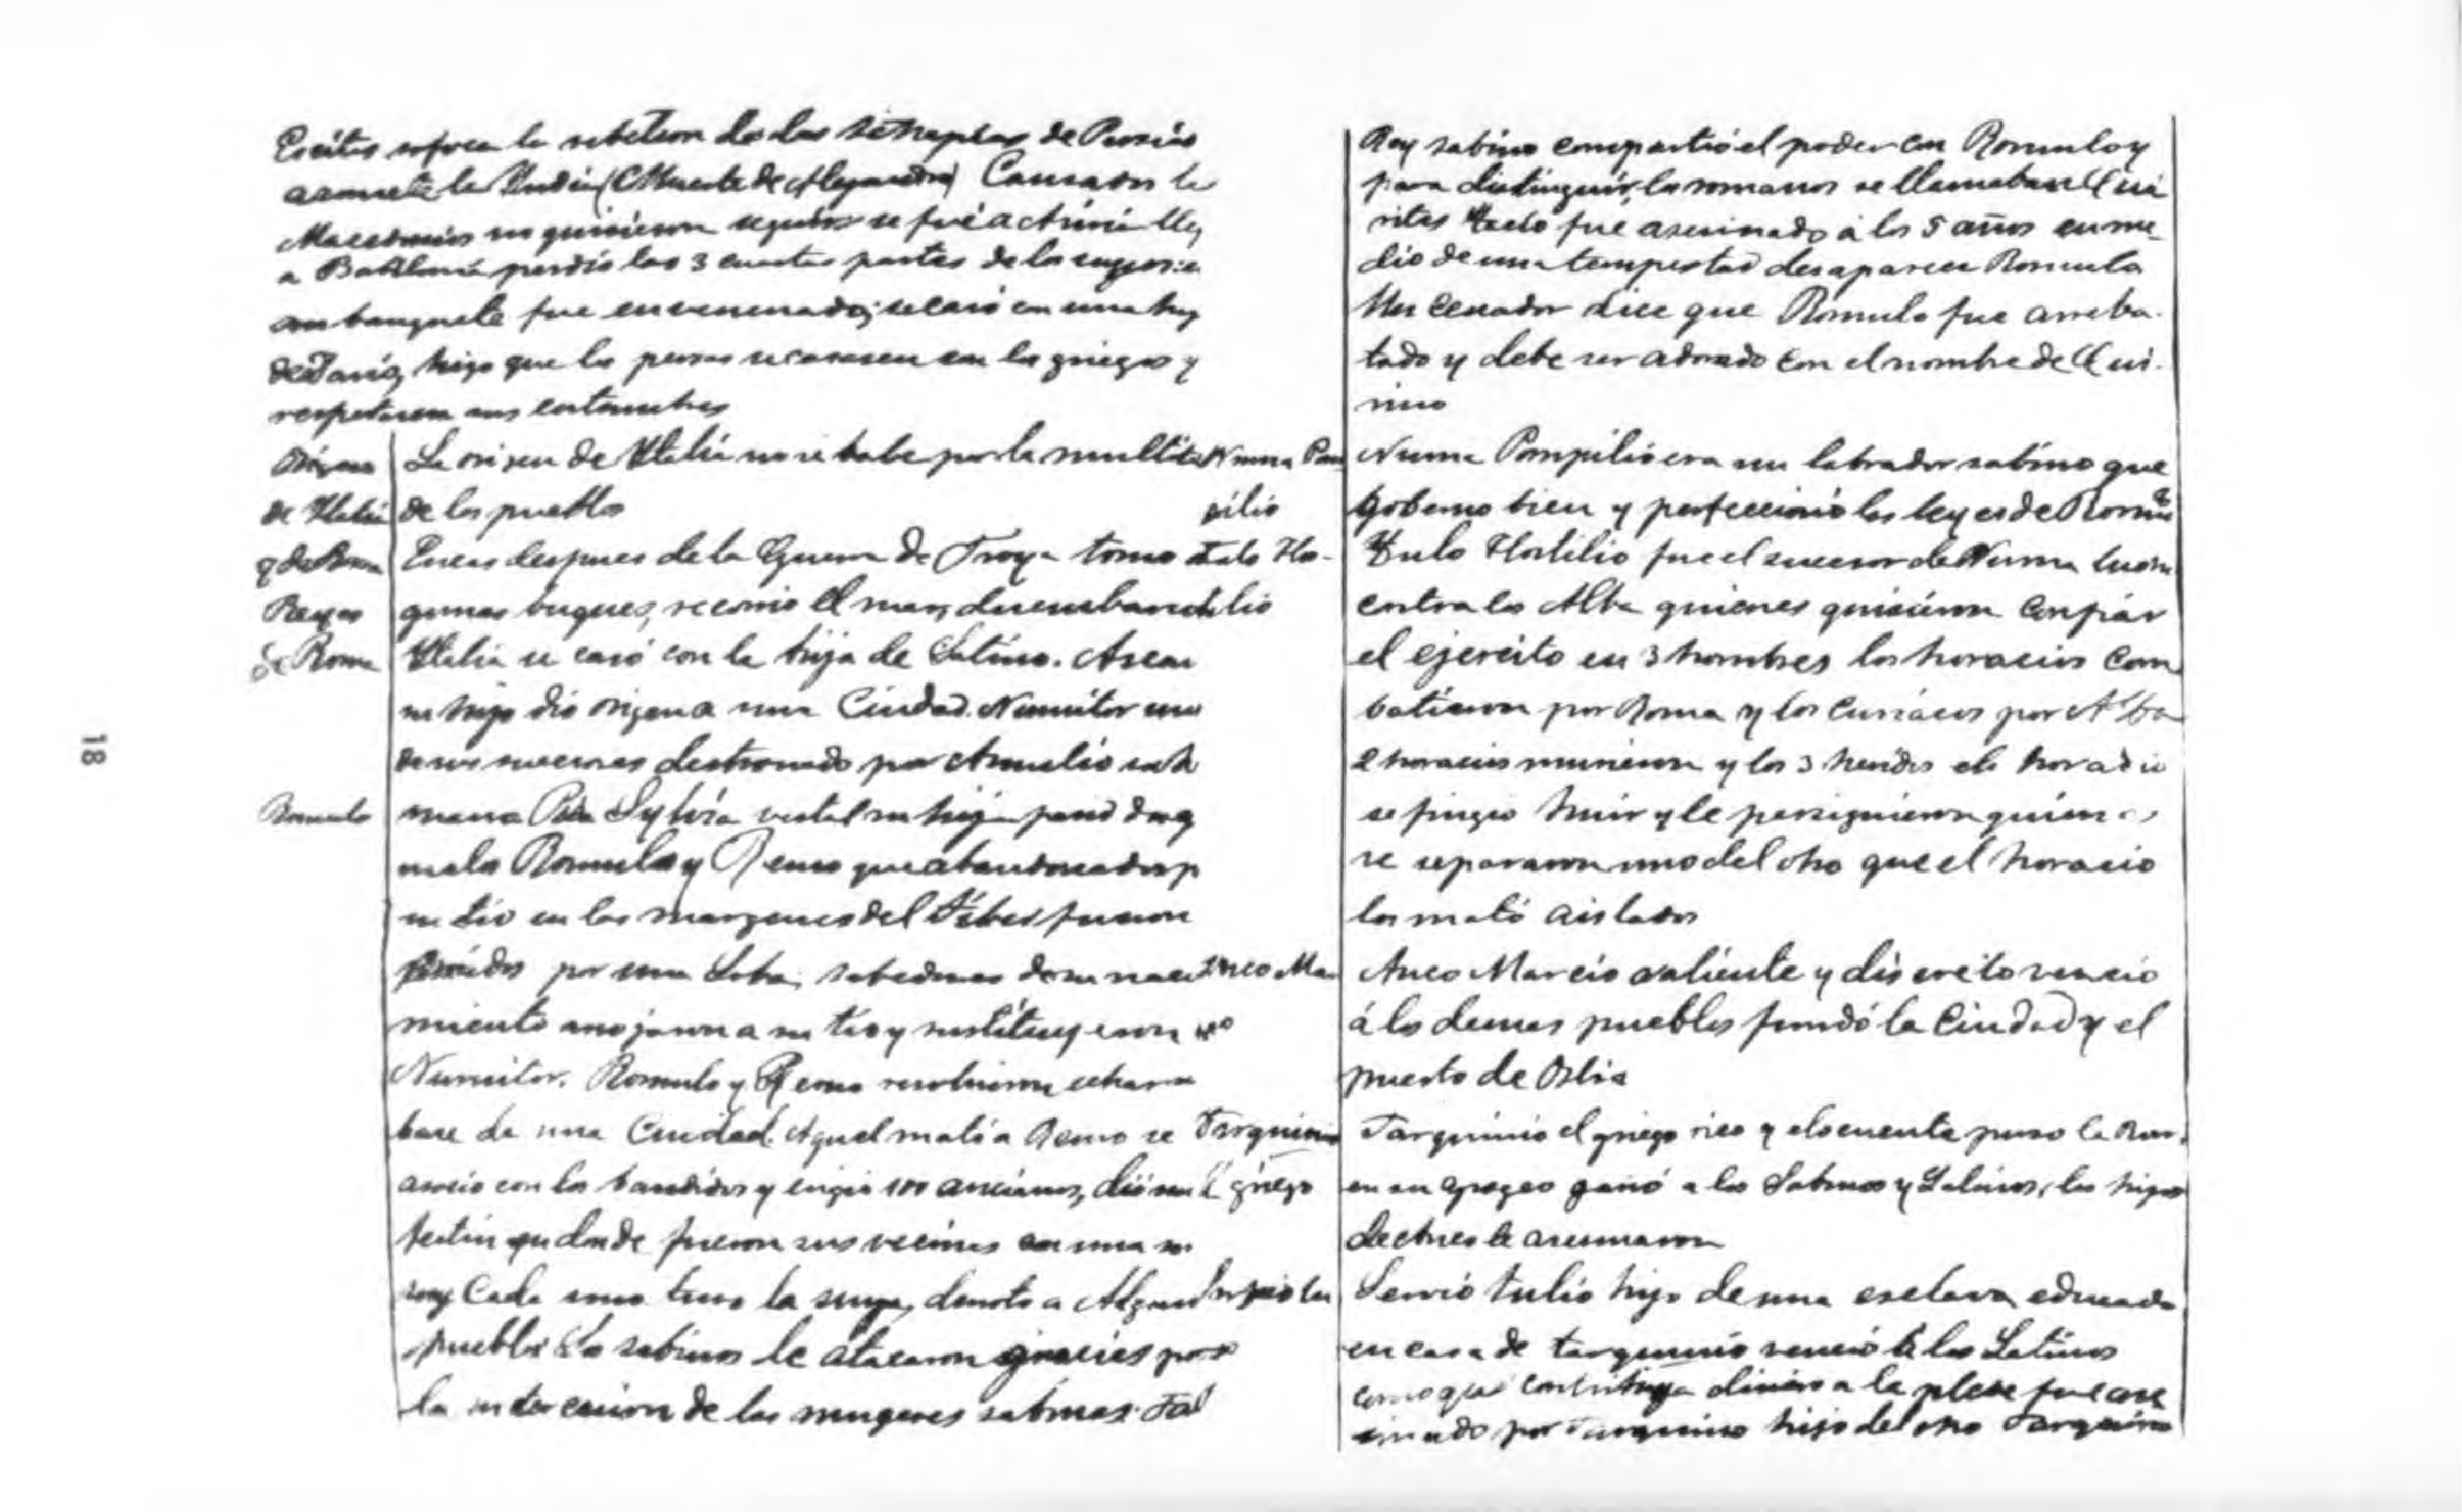 Escitas sofoca la rebelion de las de Persias
la India (Muerte de Alejandro) Cansados los
Macedonios no quisieron seguir se fué a
a Babilonia perdió las 3 cuartas partes de la
banquete fue envenenado; se casó con una hij
de Darío, hizo que los persas se casasen con los griegos y
respetasen sus costumbres
Origen
de Italia
y de Roma
Reyes
de Roma
La orijen de Italia no se sabe por la multitu
de los pueblos
Eneas despues de la Guerra de Troya tomo al
gunos buques, recorrió el mar, desembarcó
Italia se casó con la hija de Latino. Ascan
su hijo dió origen a una Ciudad. Numitor uno
de sus sucesores destronado por Amulio su h
Romulo
mano Rea Sylvia vestal su hija
Romulo y Remo que abandonados p
su tío en las margenes del Tiber fueron
por una Loba, sabedores de su naci
miento arrojaron a su tío y sustituyeron
Numitor. Romulo y Remo resolvieron echar
base de una Ciudad. Aquel mató a Remo se
asoció con los bandidos y erigió 100 ancianos, dió un
festin donde fueron sus vecinos
Cada uno tuvo la suya, derroto a Algun
pueblos Los sabinos le atacaron gracias por
la intercesion de las mugeres sabinas. Ta
Rey sabino compartió el poder con Romulo y
para distinguir, los romanos se llamaban Qui
rites Tacio fue asesinado á los 5 años en me
dio de una tempestad desaparece Romulo
Un Cenador dice que Rómulo fue arreba-
tado y debe ser adorado con el nombre de Qui-
rino
Numa Pom
pilio
Numa Pompilio era un labrador sabino que
goberno bien y perfeccionó las leyes de Romu
Tulo Ho-
tilio
Tulo Hostilio fue el sucesor de Numa
contra los Alba quienes quisieron Confiar
el ejercito en 3 hombres los horacios Com
batieron por Roma y los Curiacios por Alba
2 horacios murieron y los 3 heridos el horacio
se fingio huir y le persiguieron quienes
se separaron uno del otro que el horacio
los mató aislados
Anco Mar
Anco Marcio valiente y discreto vencio
á los demas pueblos fundó la Ciudad y el
puerto de Ostia
Tarquinio
el griego
Tarquinio el griego rico y elocuente puso la Rom
en su apogeo ganó a los Sabinos y Latinos, los hijos
de Anco le asesinaron
Servio tu
Servio tulio hijo de una esclava educado
en casa de tarquinio venció á los Latinos
como que dinero a la plebe fue ase
sinado por Tarquino hijo del otro Tarquino
18